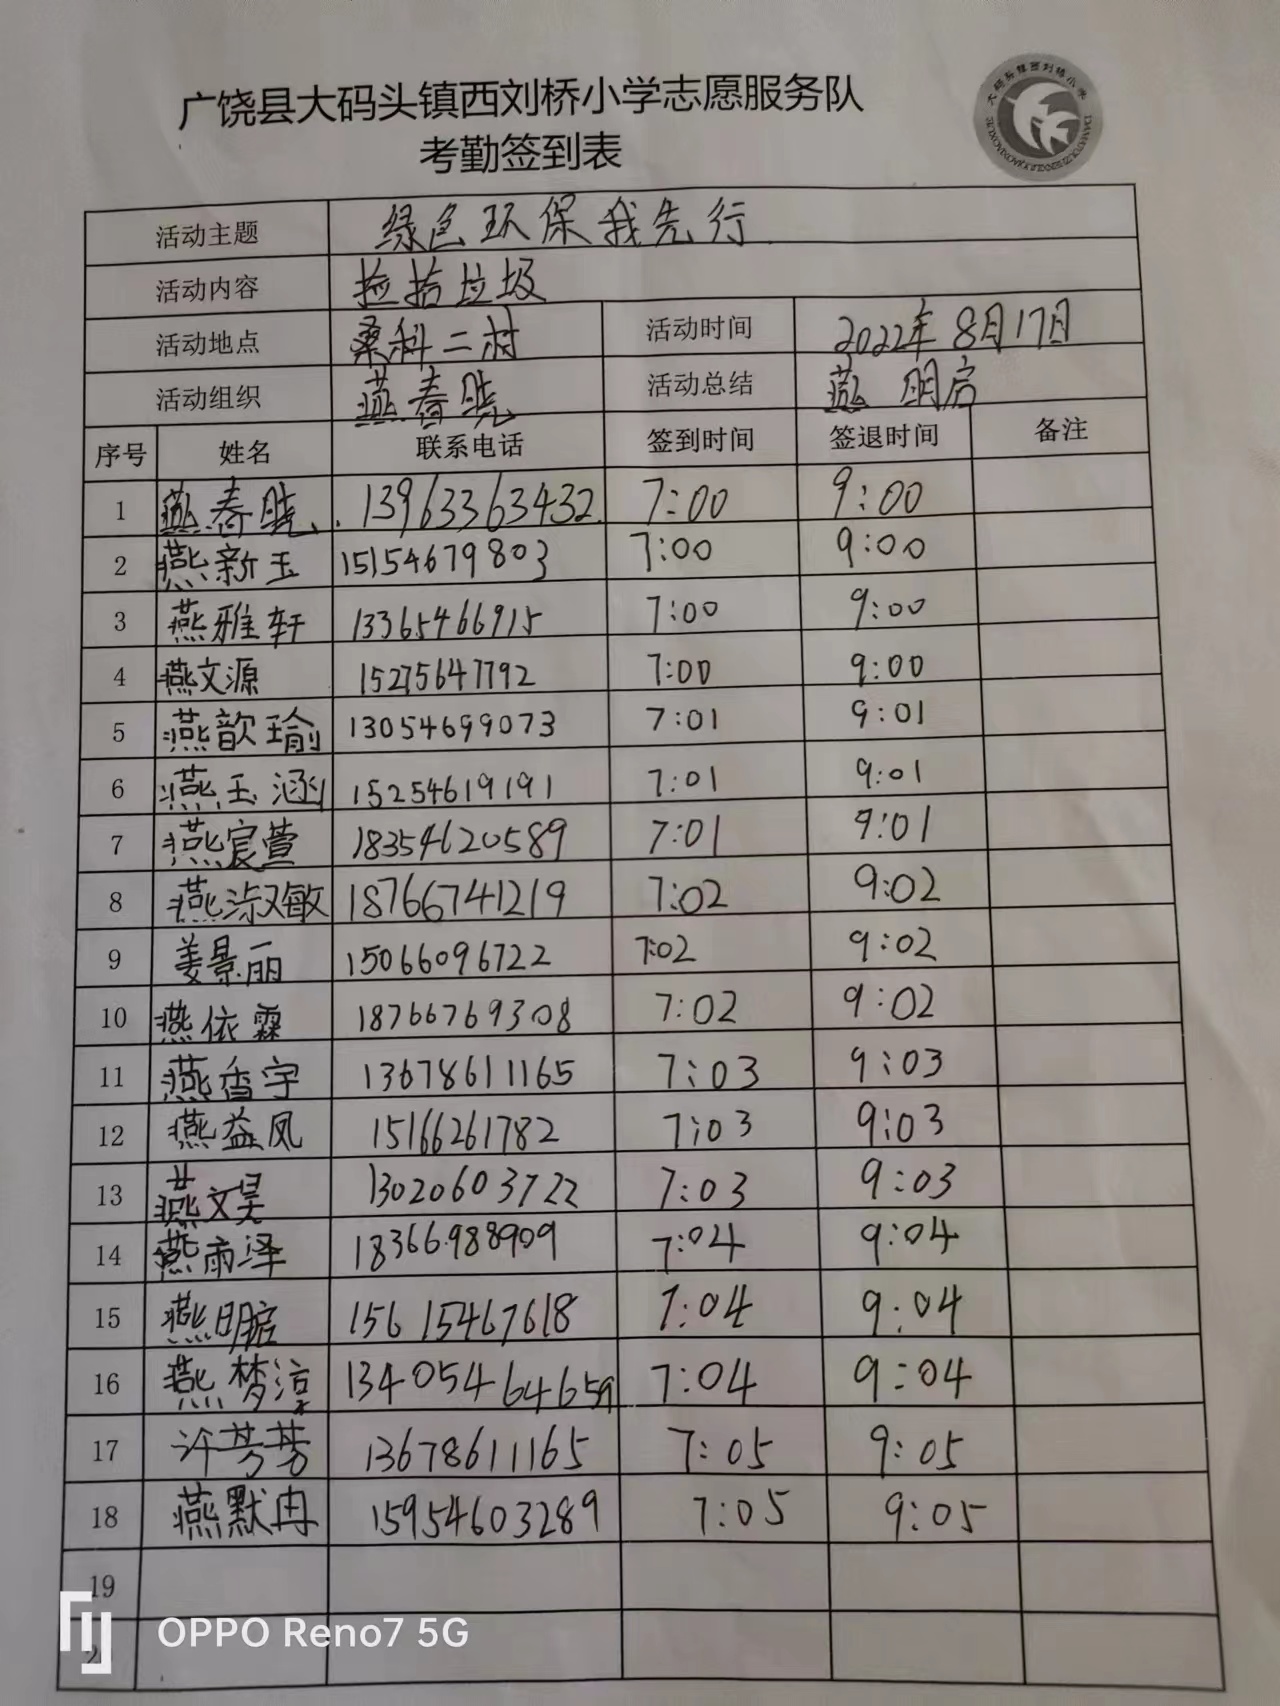 广饶县大码头镇西刘桥小学志愿服务队
考勤签到表
活动主题 绿色环保我先行
活动内容 捡拾垃圾
活动地点 桑科二村 活动时间 2022年8月17日
活动组织 燕春晓 活动总结 燕明启
序号 姓名 联系电话 签到时间 签退时间 备注
1 燕春晓 13963363432 7:00 9:00
2 燕新玉 15154679803 7:00 9:00
3 燕雅轩 13365466915 7:00 9:00
4 燕文源 15275647792 7:00 9:00
5 燕歆瑜 13054699073 7:01 9:01
6 燕玉涵 15254619191 7:01 9:01
7 燕宸萱 18354620589 7:01 9:01
8 燕淙敏 18766741219 7:02 9:02
9 姜景丽 15066096722 7:02 9:02
10 燕依霖 18766769308 7:02 9:02
11 燕香宇 13678611165 7:03 9:03
12 燕益凤 15166261782 7:03 9:03
13 燕文昊 13020603722 7:03 9:03
14 燕雨泽 18366988909 7:04 9:04
15 燕明启 15615467618 7:04 9:04
16 燕梦淳 13405464659 7:04 9:04
17 许芳芳 13678611165 7:05 9:05
18 燕默冉 15954603289 7:05 9:05
19
OPPO Reno7 5G